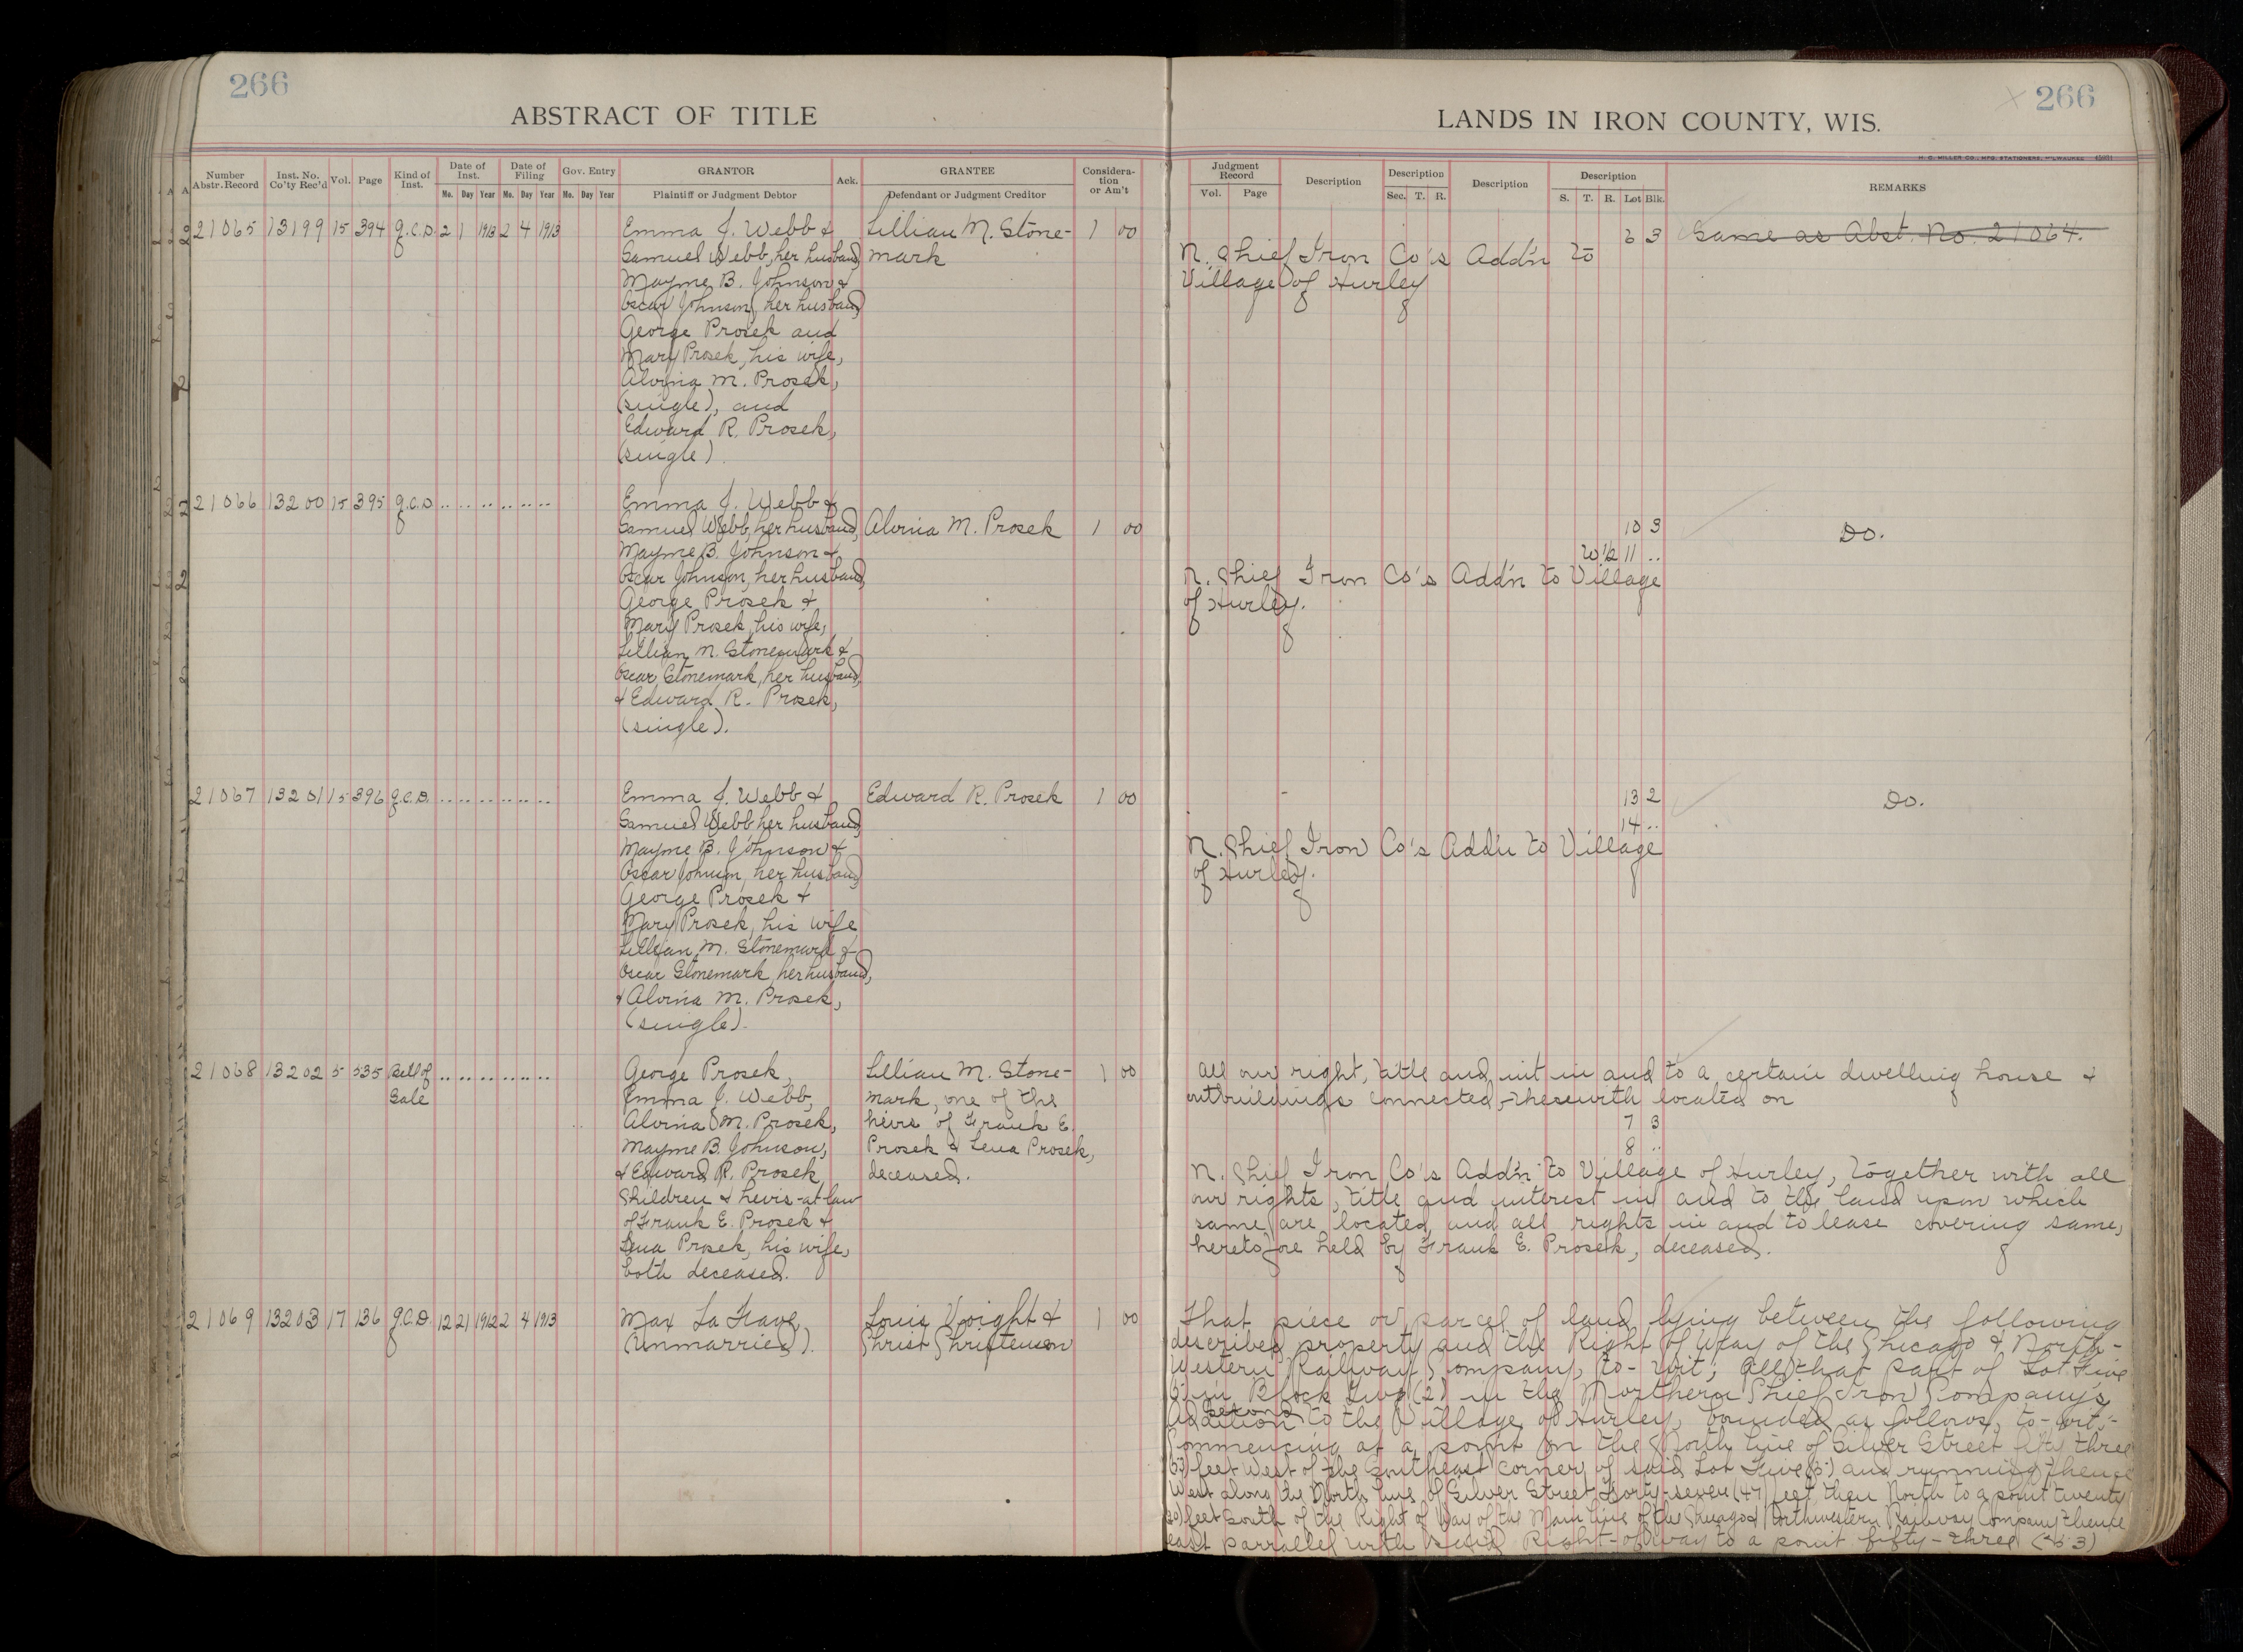 266
266
ABSTRACT OF TITLE
LANDS IN IRON COUNTY, WIS.
H. C. MILLER CO., MFG. STATIONERS, MILWAUKEE
Number Abstr. Record
Inst. No. Co'ty Rec'd
Vol.
Page
Kind of Inst.
Date of Inst.
Mo. Day Year
Date of Filing
Mo. Day Year
Gov. Entry
Mo. Day Year
GRANTOR
Plaintiff or Judgment Debtor
Ack.
GRANTEE
Defendant or Judgment Creditor
Considera-
tion
or Am't
Judgment Record
Vol. Page
Description
Description
Sec. T. R.
Description
Description
S. T. R. Lot Blk.
REMARKS
21065 13199 15 394 Q.C.D. 2 1 1913 2 4 1913
Emma J. Webb &
Samuel Webb, her husband,
Mayme B. Johnson &
Oscar Johnson, her husband,
George Prosek and
Mary Prosek, his wife,
Alvina M. Prosek,
(single), and
Edward R. Prosek,
(single).
Lillian M. Stone-
mark
1 00
6 3
N. Chief Iron Co's Add'n to
Village of Hurley
Same as Abst. No. 21064.
21066 13200 15 395 Q.C.D .. .. .. .. .. ..
Emma J. Webb &
Samuel Webb, her husband,
Mayme B. Johnson &
Oscar Johnson, her husband,
George Prosek &
Mary Prosek, his wife,
Lillian N. Stonemark &
Oscar Stonemark, her husband,
& Edward R. Prosek,
(single).
Alvina M. Prosek
1 00
10 3
W ½ 11 ..
N. Chief Iron Co's Add'n to Village
of Hurley.
Do.
21067 13201 15 396 Q.C.D. .. .. .. .. .. ..
Emma J. Webb &
Samuel Webb her husband,
Mayme B. Johnson &
Oscar Johnson, her husband,
George Prosek &
Mary Prosek, his wife
Lillian M. Stonemark &
Oscar Stonemark, her husband,
& Alvina M. Prosek,
(single).
Edward R. Prosek
1 00
13 2
14 ..
N. Chief Iron Co's Add'n to Village
of Hurley.
Do.
21068 13202 5 535 Bill of
Sale
.. .. .. .. .. ..
George Prosek,
Emma J. Webb,
Alvina M. Prosek,
Mayme B. Johnson,
& Edward R. Prosek
Children & heirs-at-law
of Frank E. Prosek &
Lena Prosek, his wife,
both deceased.
Lillian M. Stone-
mark, one of the
heirs of Frank E.
Prosek & Lena Prosek,
deceased.
1 00
All our right, title and int in and to a certain dwelling house &
outbuildings connected therewith located on
7 3
8 ..
N. Chief Iron Co's Add'n to Village of Hurley, together with all
our rights, title and interest in and to the land upon which
same are located and all rights in and to lease covering same,
heretofore held by Frank E. Prosek, deceased.
21069 13203 17 136 Q.C.D. 12 21 1912 2 4 1913
Max La Fave,
(Unmarried).
Louis Voight &
Christ Christensen
1 00
That piece or parcel of land lying between the following
described property and the Right of Way of the Chicago & North-
western Railway Company, to-wit; All that part of Lot Five
(5) in Block Two (2) in the Northern Chief Iron Company's
second
Addition to the Village of Hurley, bounded as follows, to-wit;-
Commencing at a point on the North line of Silver Street fifty three
(53) feet West of the Southeast corner of said Lot Five (5) and running thence
West along the North line of Silver Street Forty-seven (47) feet, then North to a point twenty
(20) feet South of the Right of Way of the Main line of the Chicago & Northwestern Railway Company thence
east parrallel with said Right-of-way to a point fifty-three (53)